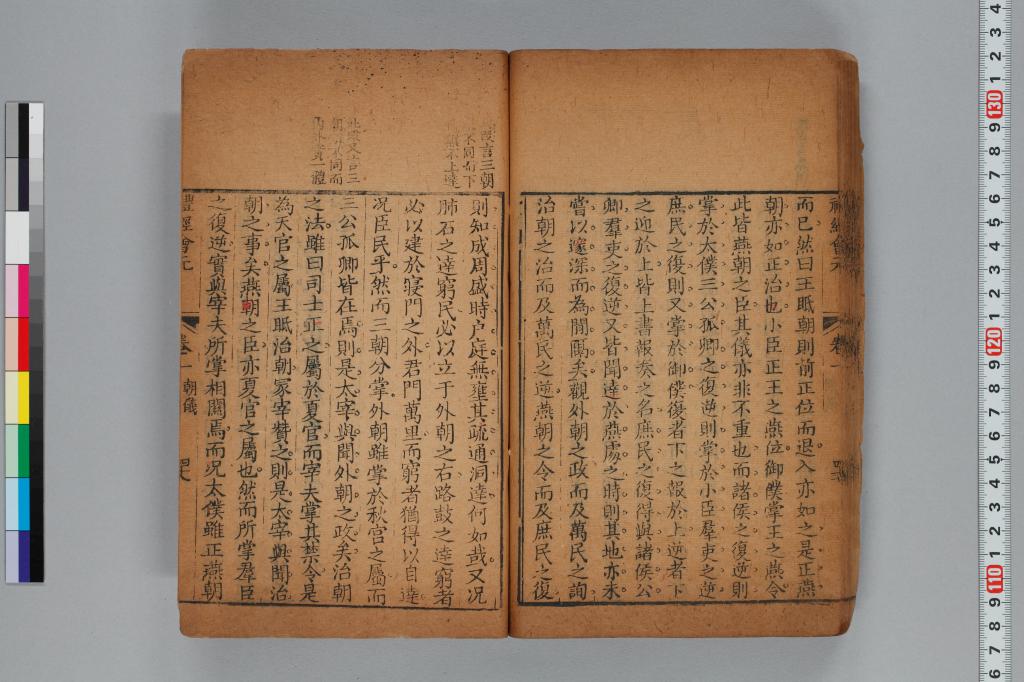 而已然曰王眡朝則前正位而退入亦如之是正燕
朝亦如正治也小臣正王之燕位御僕掌王之燕令
此皆燕朝之臣其儀亦非不重也而諸侯之復逆則
掌於太僕三公孤卿之復逆則掌於小臣羣吏之逆
庶民之復則又掌於御僕復者下之報於上逆者下
之迎於上皆上書報奏之名庶民之復得與諸侯公
卿羣吏之復逆又皆聞達於燕處之時則其地亦未
嘗以邃深而為間隔矣觀外朝之政而及萬民之詢
治朝之治而及萬民之逆燕朝之令而及庶民之復
故言三朝
不同而下
情上達
則知成周盛時户庭無壅其疏通洞達何如哉又况
肺石之達窮民必以立于外朝之右路鼓之達窮者
必以建於寢門之外君門萬里而窮者猶得以自達
况臣民乎然而三朝分掌外朝雖掌於秋官之屬而
此段又言三
朝不同而
一體
三公孤卿皆在焉則是太宰與聞外朝之政矣治朝
之法雖曰司士正之屬於夏官而宰夫掌其禁令是
為天官之屬王眡治朝冢宰贊之則是太宰與聞治
朝之事矣燕朝之臣亦夏官之屬也然而所掌羣臣
之復逆實與宰夫所掌相關焉而况太僕雖正燕朝
禮經會元 卷一 朝儀